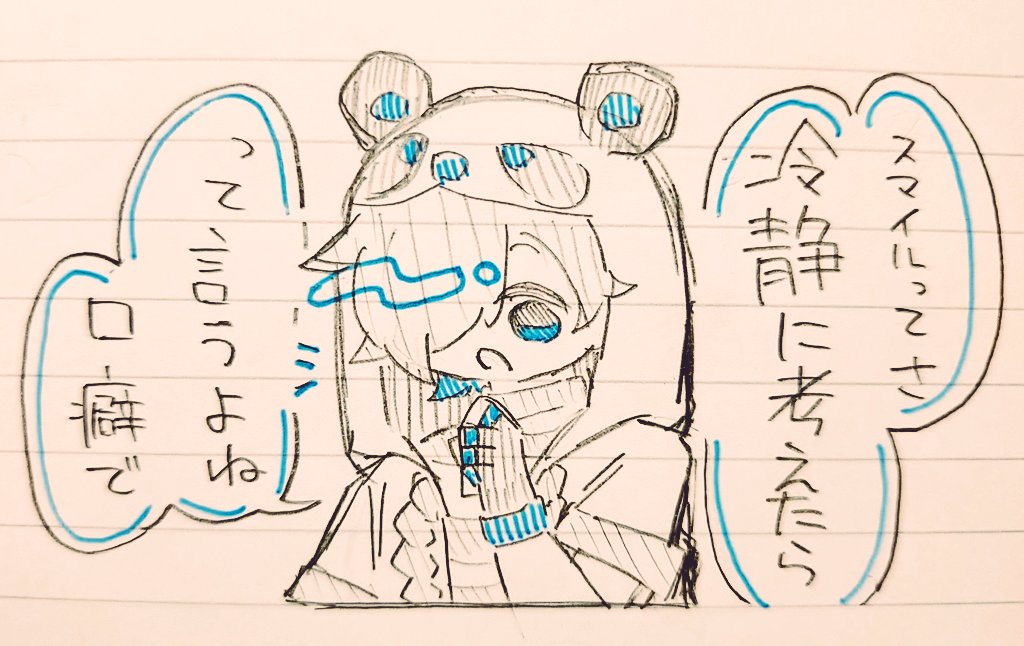 スマイルってさ
冷静に考えたら
って言うよね
口癖で